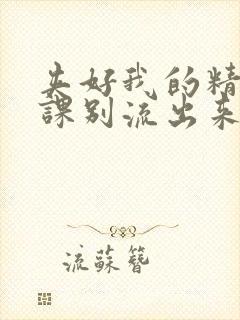 夹好我的精
課别流出来
流蘇簪